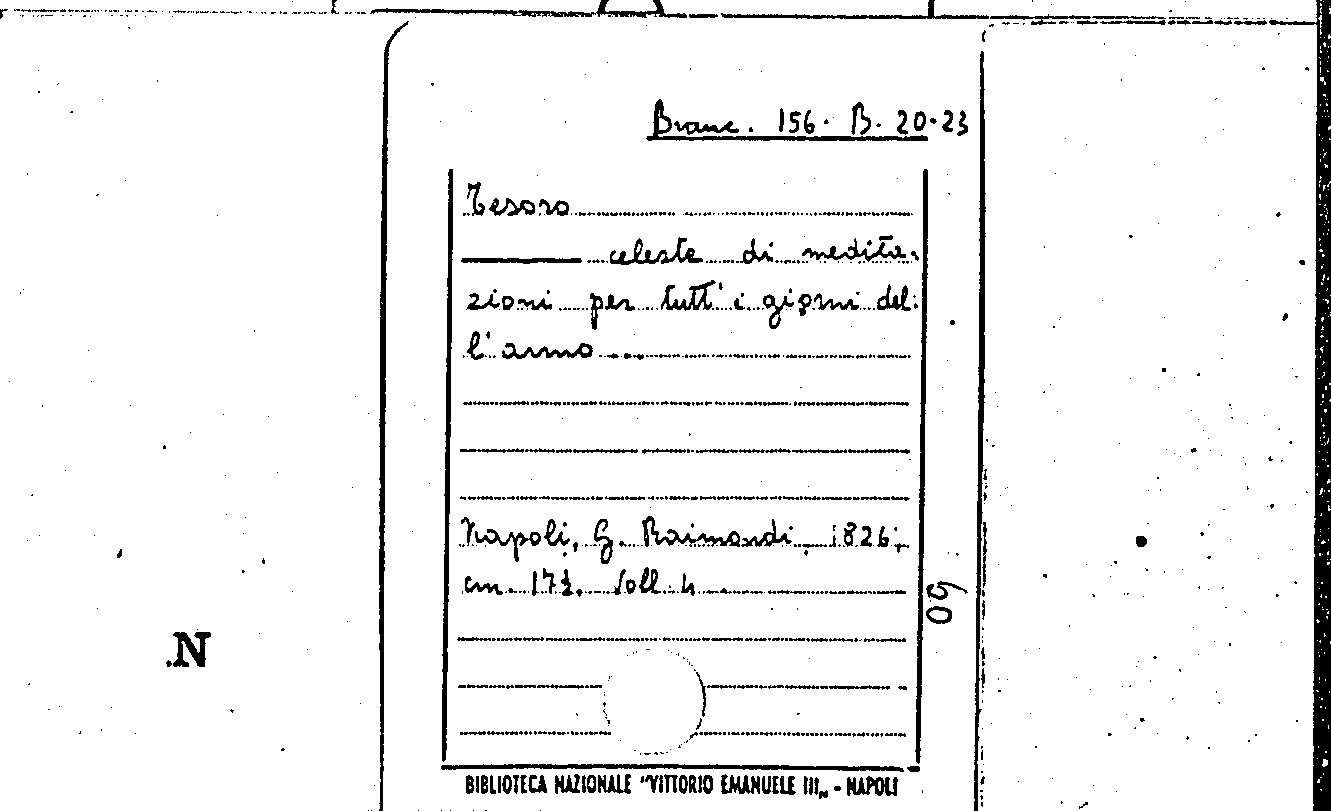 Branc. 156. B. 20-23
Tesoro
——— celeste di medita-
zioni per tutt' i giorni del-
l'anno ...
Napoli, G. Raimondi, 1826;
cm. 17½. Voll. 4
60
.N
BIBLIOTECA NAZIONALE "VITTORIO EMANUELE III„ - NAPOLI